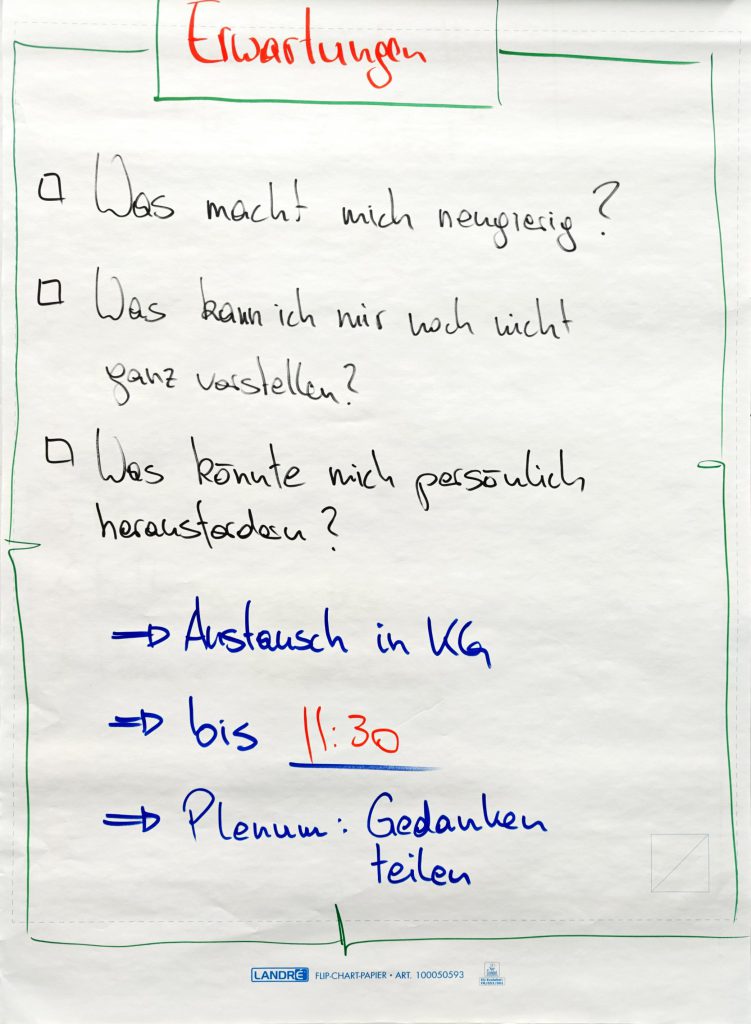 Erwartungen
Was macht mich neugierig?
Was kann ich mir noch nicht
ganz vorstellen?
Was könnte mich persönlich
herausfordern?
⇒ Austausch in KG
⇒ bis 11:30
⇒ Plenum: Gedanken
teilen
LANDRÉ FLIP-CHART-PAPIER • ART. 100050593